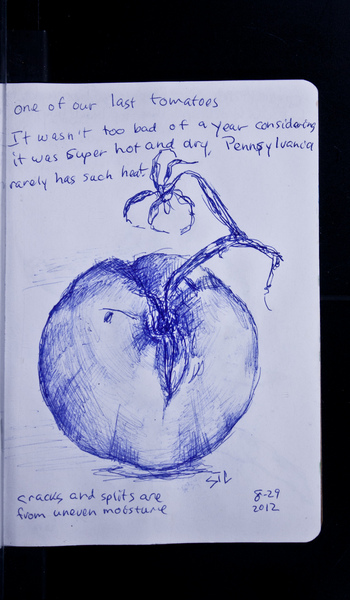 one of our last tomatoes
It wasn't too bad of a year considering
it was super hot and dry, Pennsylvania
rarely has such heat.
cracks and splits are
from uneven moisture
8-29
2012